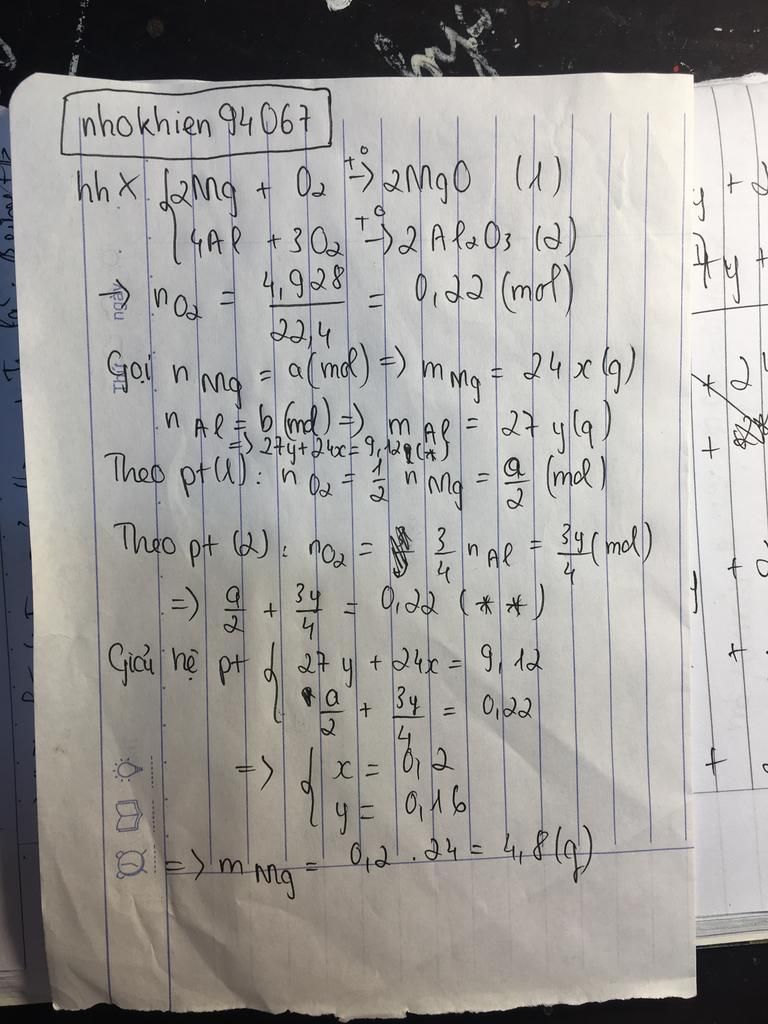 nhokhien 94067
hh X { 2Mg + O₂ -t°-> 2MgO (1)
4Al + 3O₂ -t°-> 2Al₂O₃ (2)
=> n O₂ = 4,928/22,4 = 0,22 (mol)
Gọi n Mg = a (mol) => m Mg = 24x (g)
n Al = b (mol) => m Al = 27y (g)
=> 27y + 24x = 9,12g (*)
Theo pt (1): n O₂ = 1/2 n Mg = a/2 (mol)
Theo pt (2): n O₂ = 3/4 n Al = 3y/4 (mol)
=> a/2 + 3y/4 = 0,22 (**)
Giải hệ pt { 27y + 24x = 9,12
a/2 + 3y/4 = 0,22
=> { x = 0,2
y = 0,16
=> m Mg = 0,2 . 24 = 4,8 (g)